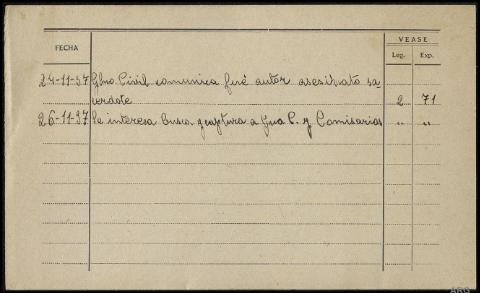 VEASE
FECHA
Leg. Exp.
24-11-37 Gbno. Civil comunica fué autor asesinato sa-
cerdote 2 71
26-11-37 Se interesa busca y captura a Gua C. y Comisarias " "
ARG